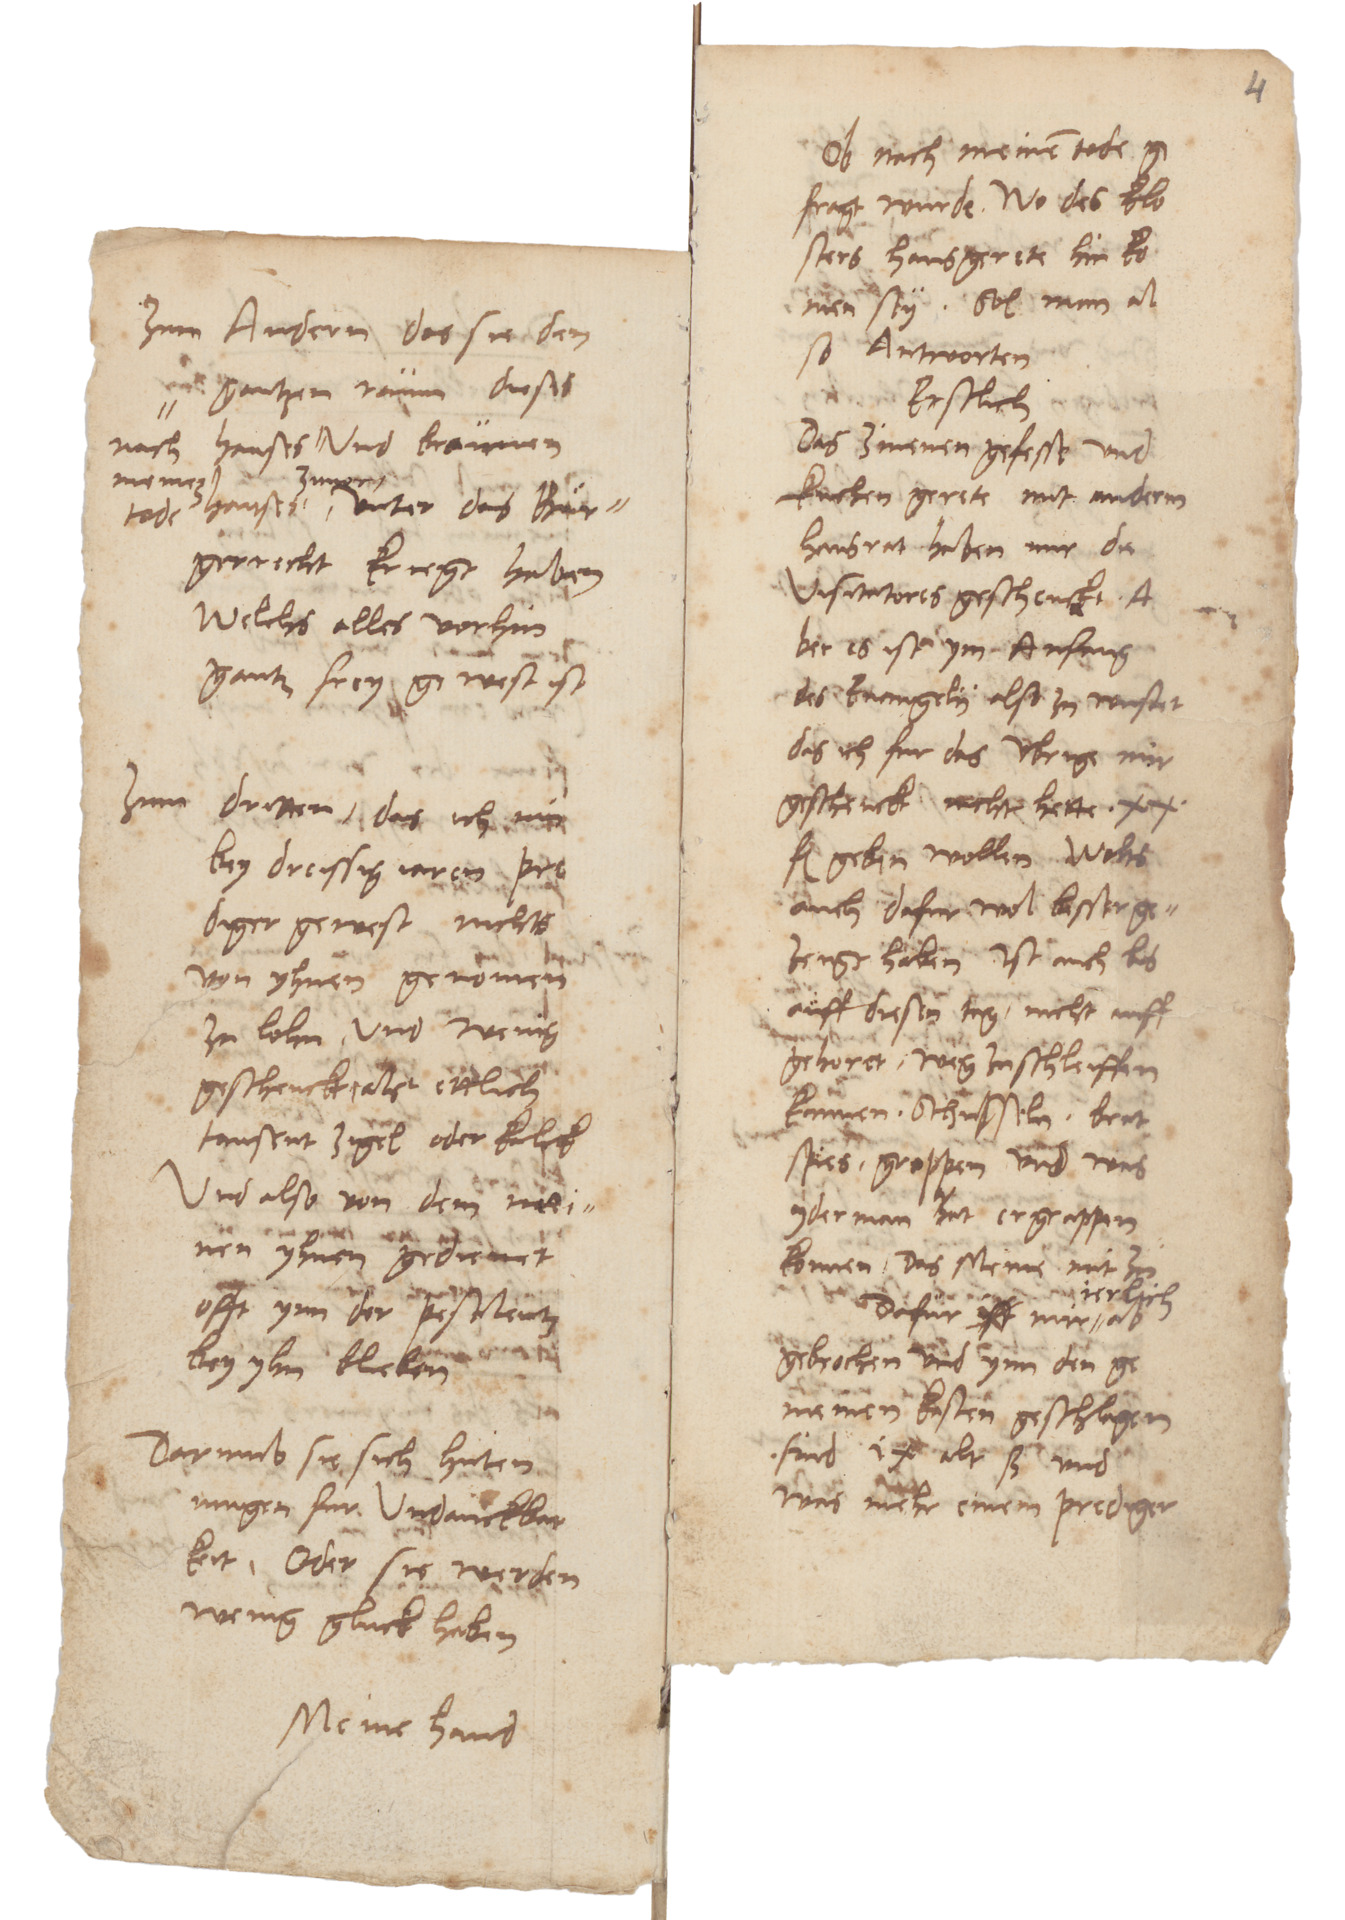 Zum Andern das sie den
gantzen raum dieses
nach hauses Und braunen
meinem zuuor
tode hauses, Vnter das Bur-
gerrecht kriegt haben
Welchs alles vorhin
gantz frey gewest ist
Zum dritten, das ich nu
bey dreissig iaren pre
diger gewest nichts
von yhnen genomen
zu lohn Und wenig
geschenckt, als ettlich
tausent zigel oder kalck
Und also von dem mei-
nen yhnen gedienet
offt ynn der pestilentz
bey yhn blieben
Darumb sie sich huten
mugen fur Undanckbar
keit, Oder sie werden
wenig gluck haben
Meine hand
4
Ob nach meine͞ tode ge
fragt wurde. Wo des klo
sters hausgerete hin ko
men sey. Sol man al
so Antworten
Erstlich
Das Zinenen gefesse vnd
kuchen gerete mit anderm
hausrat haben mir die
Visitatores geschenckt. A
ber es ist ym Anfang
des Euangelij also zu wustet
das ich fur das Vbrige mir
geschenckt nicht hette. xx.
fl geben wollen Wolts
auch dafur wol besser ge-
zeugt haben Ist auch bis
auff diesen tag, nicht auff
gehoret, weg zuschleiffen
kannen. Schusseln. brat
spies, groppen vnd was
yderman hat ergrappen
konnen, Das Meine mit zu
ierlich
Dafur mir, ab
gebrochen vnd ynn den ge
meinen kasten geschlagen
sind ix alt ß vnd
was mehr einem prediger